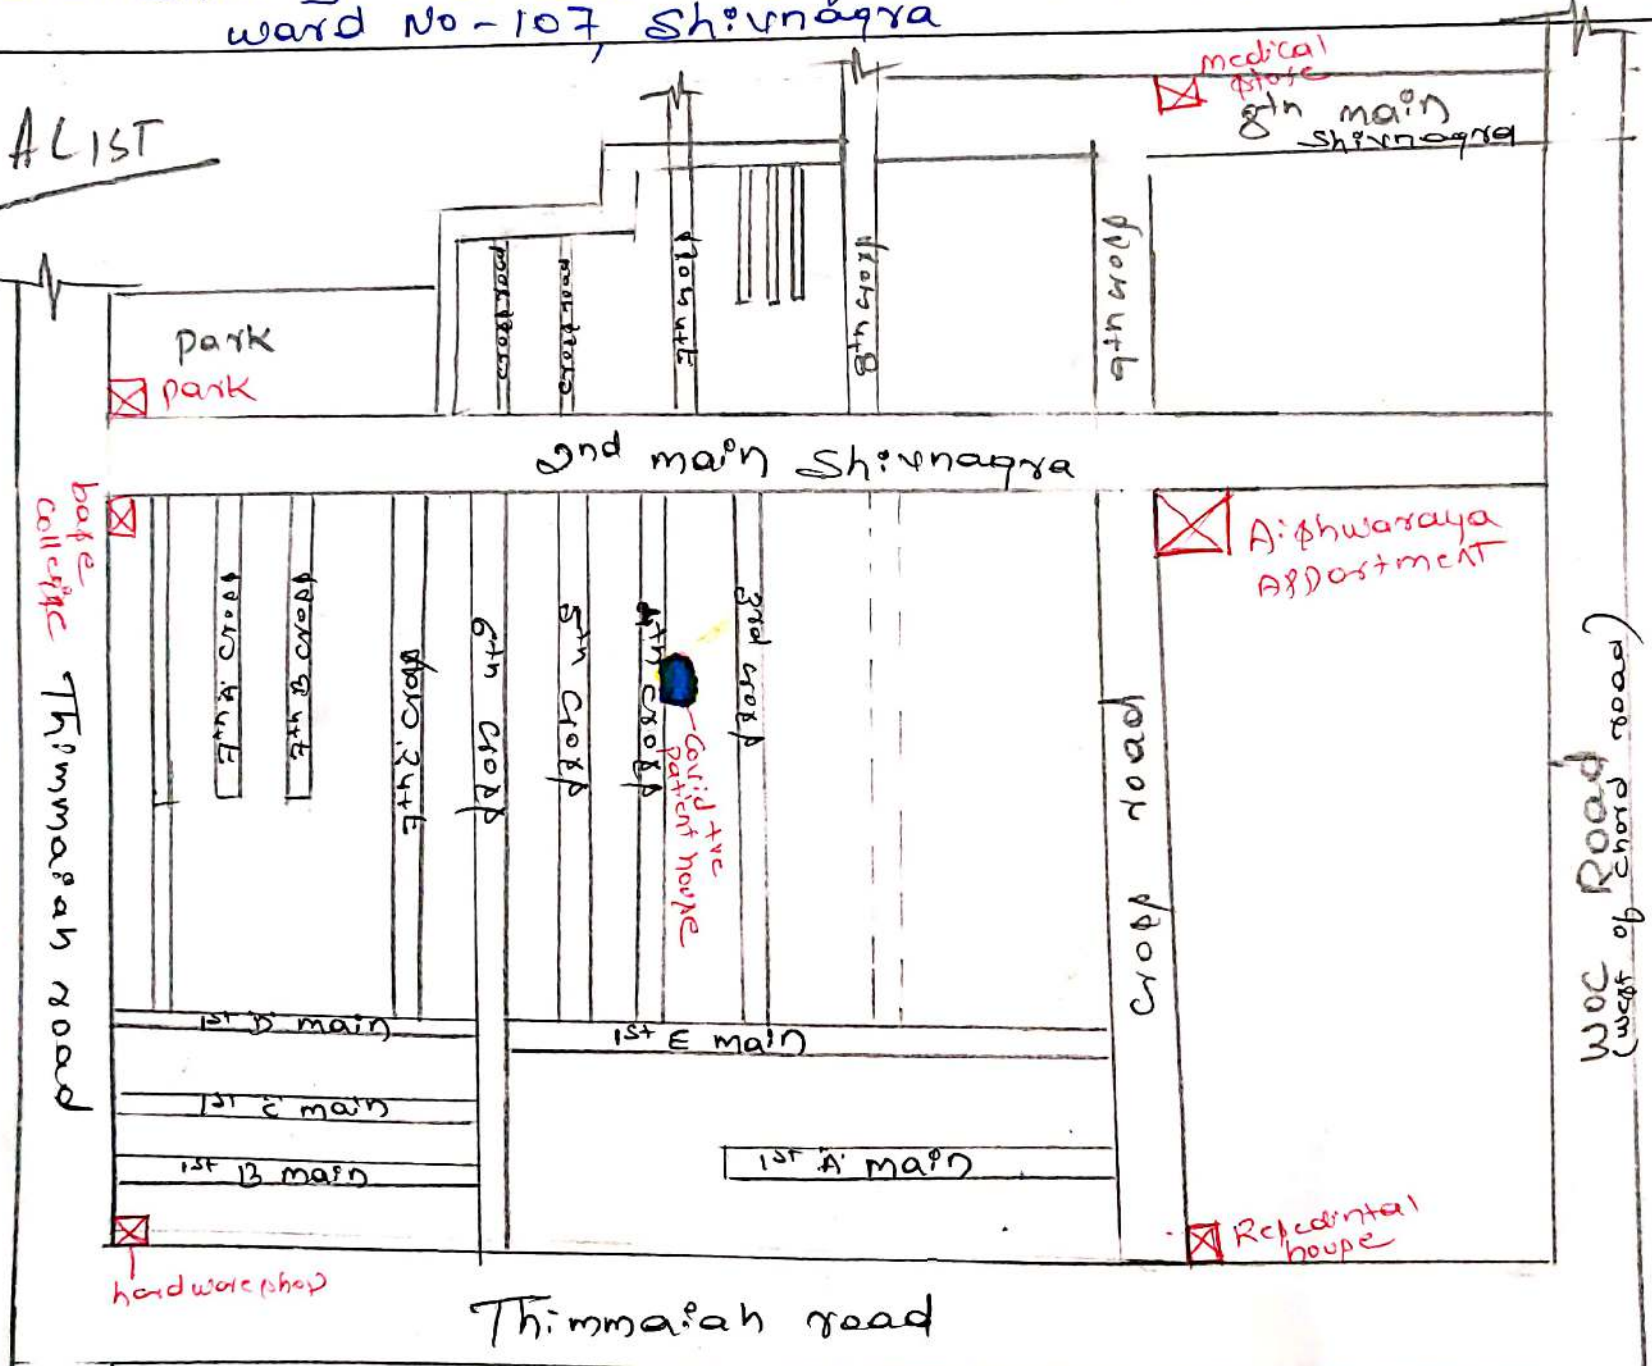 ward No-107, Shivnagra
A LIST
medical
store
8th main
Shivnagra
park
park
cross road
cross road
7th cross
8th cross
9th cross
2nd main Shivnagra
Aishwaraya
Appartment
7th A cross
7th B cross
7th cross
6th cross
5th cross
4th cross
3rd cross
Covid +ve
patient house
cross road
Thimmaiah road
WOC Road
(west of chord road)
1st D main
1st E main
1st C main
1st B main
1st A main
Resedintal
house
hardware shop
Thimmaiah road